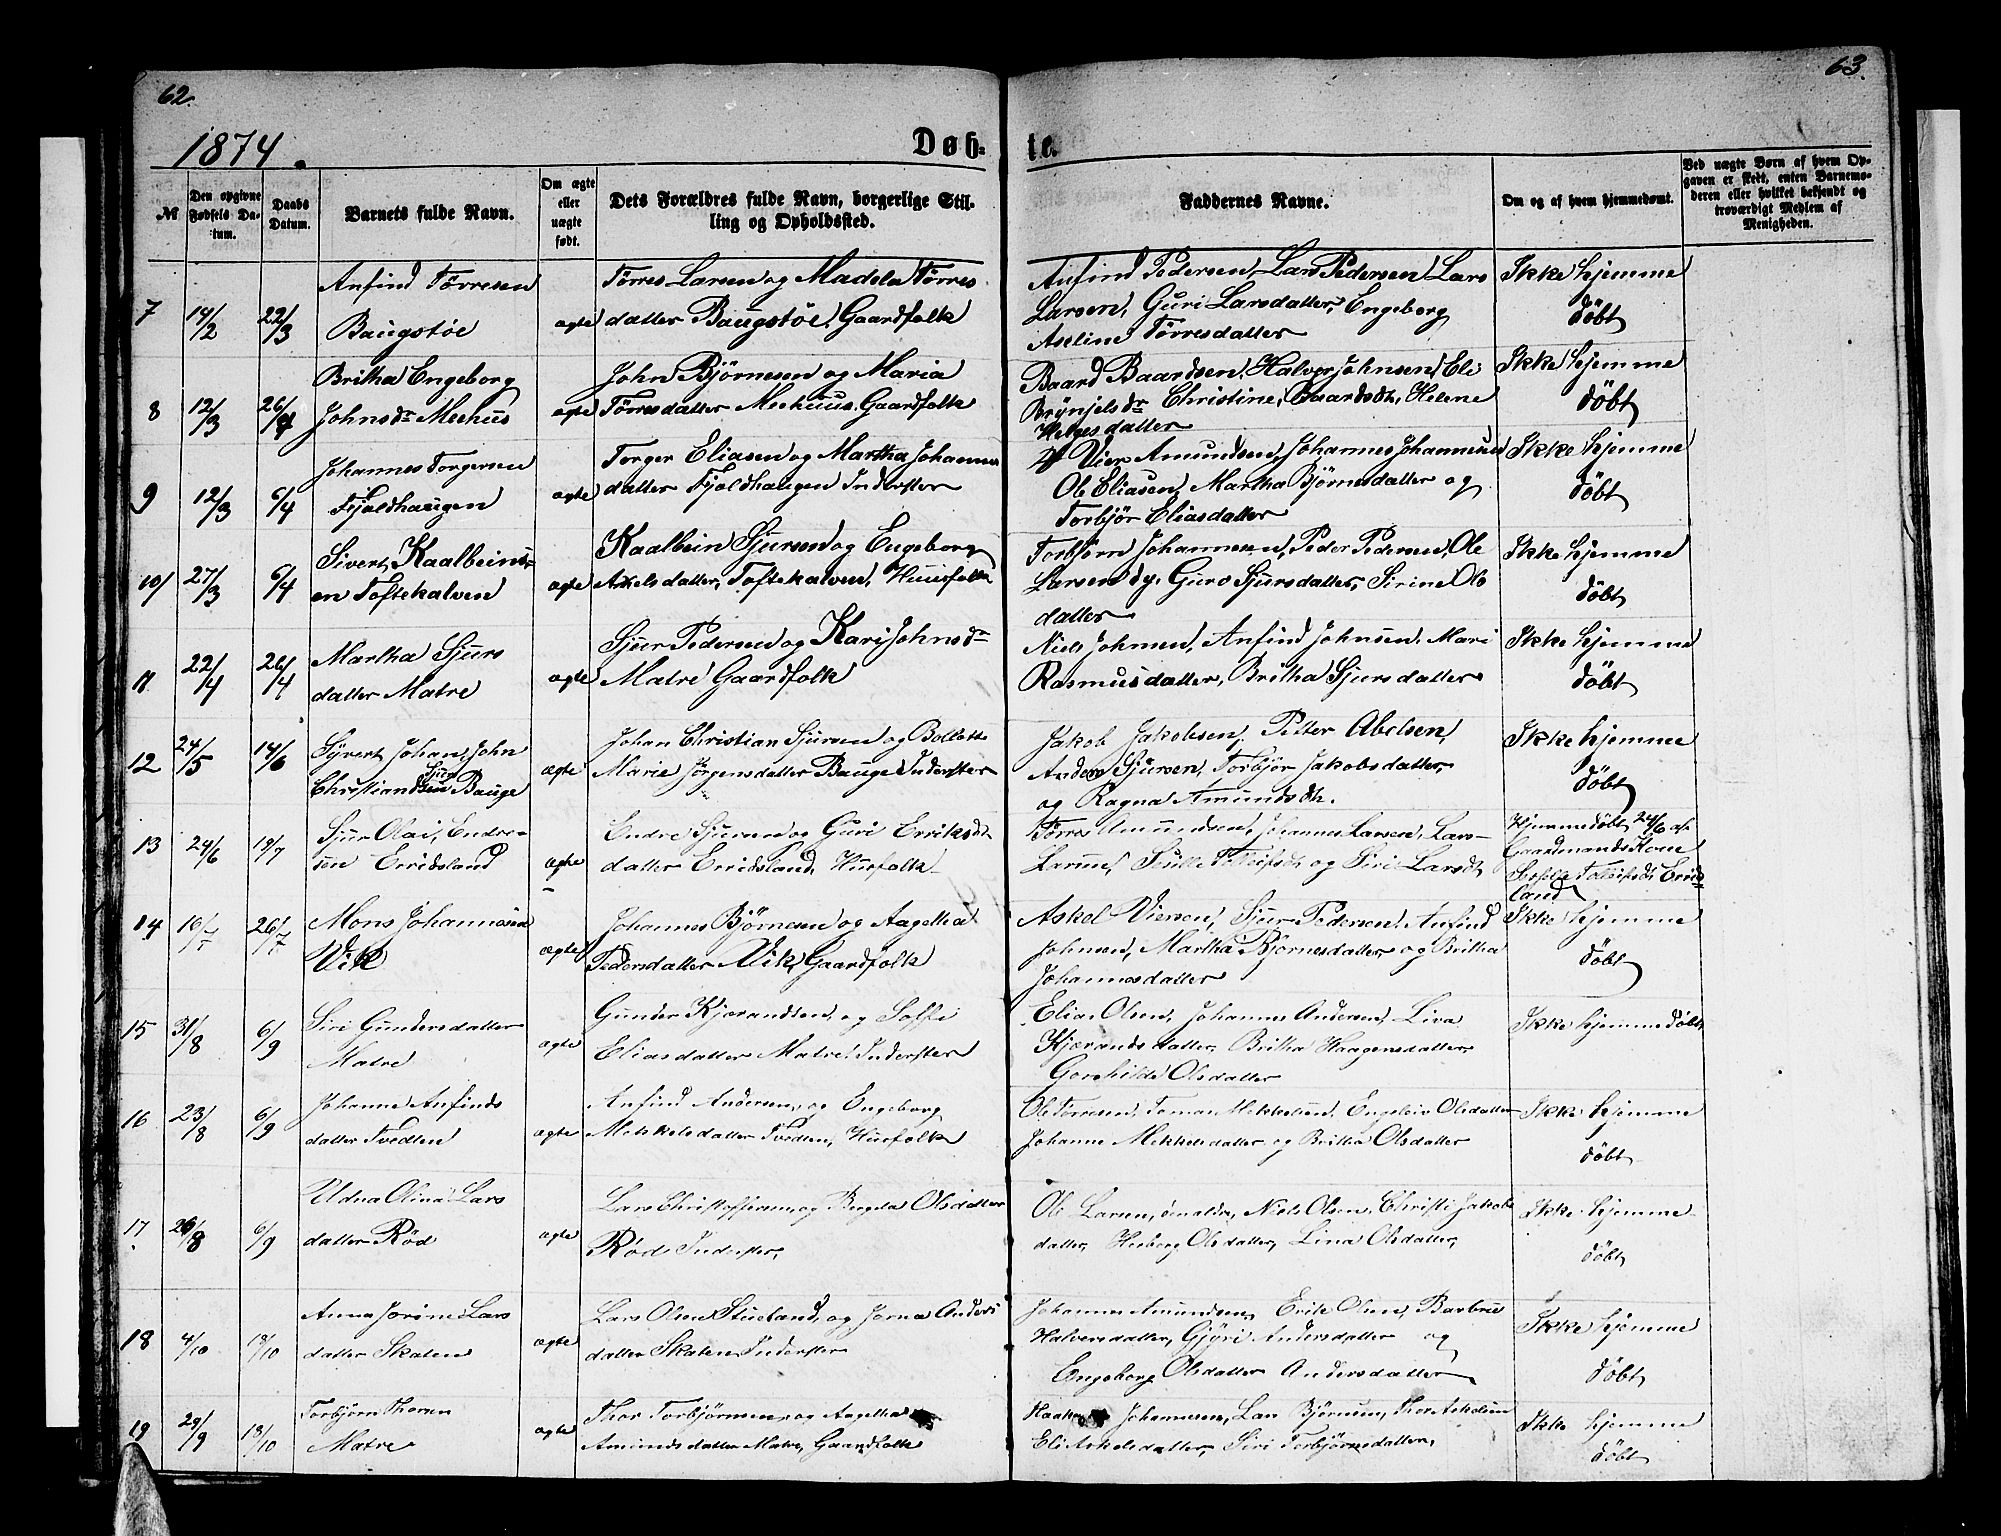 62.
63.
1874.
Døb-
te.
№
Den opgivne Fødsels Datum.
Daabs Datum.
Barnets fulde Navn.
Om ægte eller uægte født.
Dets Forældres fulde Navn, borgerlige Stilling og Opholdssted.
Faddernes Navne.
Om og af hvem hjemmedøbt.
Ved uægte Børn af hvem Opgaven er skedt, enten Barnemoderen eller hvilket bekjendt og troværdigt Medlem af Menigheden.
7 14/2 22/3
Anfind Tørresen
Baugstøe
ægte
Tørres Larsen og Madela Tørres
datter Baugstøe, Gaardfolk
Anfind Pedersen, Lars Pedersen, Lars
Larsen, Guri Larsdatter, Engeborg
Axeline Tørresdatter
Ikke hjemme
døbt
8 12/3 26/4
Britha Engeborg
Johnsdr Meehus
ægte
John Bjørnesen og Maria
Tørresdatter Meehuus, Gaardfolk
Baard Baardsen, Halvor Johnsen, Eli
Brynjelsdr Christine Baardsdt, Helene
Helgesdatter
Ikke hjemme
døbt
9 12/3 6/4
Johannes Torgersen
Fjeldhaugen
ægte
Torger Eliasen og Martha Johannes
datter Fjeldhaugen Inderster
Vier Amundsen, Johannes Johannesen
Ole Eliasen, Martha Bjørnesdatter og
Torbjør Eliasdatter
Ikke hjemme
døbt
10 27/3 6/4
Sivert Kaalbeins-
en Toftekalven
ægte
Kaalbein Sjursen og Engeborg
Axelsdatter, Toftekalven, Huusfolk
Torbjørn Johannesen, Peder Pedersen, Ole
Larsen og, Guro Sjursdatter, Sirine Ols
datter
Ikke hjemme
døbt
11 22/4 26/4
Martha Sjurs
datter Matre
ægte
Sjur Pedersen og Kari Johnsdr
Matre Gaardfolk
Niels Johnsen, Anfind Johnsen, Mari
Rasmusdatter, Britha Sjursdatter
Ikke hjemme
døbt
12 24/5 14/6
Syvert Johan John
Christian Sjursen Bauge
ægte
Johan Christian Sjursen og Bollette
Marie Jørgensdatter Bauge Inderster
Jakob Jakobsen, Petter Abelsen,
Anders Sjursen, Torbjør Jakobsdatter,
og Ragna Amundsdtr.
Ikke hjemme
døbt
13 24/6 19/7
Sjur Olai, Endre-
sen Erridsland
ægte
Endre Sjursen og Guri Erriksdt
datter Erridsland, Husfolk
Tørres Amundsen, Johannes Larsen, Lars
Larsen, og Siri Larsdt
Hjemmedøbt 24/6 af
Gaardmands Kone
land
14 26/7
Mons Johannesen
Vik
ægte
Johannes Bjørnesen og Aagetha
Pedersdatter Vik, Gaardfolk
Askol Viersen, Sjur Pedersen, Anfind
Johnsen, Martha Bjørnesdatter og Britha
Johannesdatter
Ikke hjemme
døbt
15 31/8 6/9
Siri Gundersdatter
Matre
ægte
Gunder Kjærandsen, og Solfi
Eliasdatter Matre, Inderster
Elias Olsen, Johannes Andersen, Liva
Kjærandsdatter, Britha Haagensdatter,
Gorohilde Olsdatter
Ikke hjemmedøbt
16 23/8 6/9
Johanne Anfinds
datter Tvedten
ægte
Anfind Andersen, og Engeborg
Mekkelsdatter Tvedten, Huusfolk
Ole Tørresen, Mekkelsen, Olsdatter
Johanne Mekkelsdatter og Britha Olsdatter
Ikke hjemme
døbt
17 26/8 6/9
Udna Olina Lars
datter Rød
ægte
Lars Christoffersen, og Olsdatter
Rød Inderster,
Ole Larsen, Niels Olsen, Christi Jakobs
datter, Olsdatter, Lina Olsdatter,
Ikke hjemme
døbt
18 4/10 18/10
Anna Jorine Lars
datter Skaten
ægte
Lars Olsen Stueland, og Jorna Anders
datter Skaten Inderster
Johannes Amundsen, Erik Olsen, Barbroe
Halversdatter, Gjøri Andersdatter og
Engeborg Olsdatter Andersdatter
Ikke hjemme
døbt
19 29/9 18/10
Torbjørn Thorsen
Matre
ægte
Thor Torbjørnsen, og Aagetha
Amundsdatter Matre, Gaardfolk
Haakon Johannesen, Lars Bjørnsen, Thor Askelsen
Eli Askelsdatter, Siri Torbjørnsdatter,
Ikke hjemme
døbt